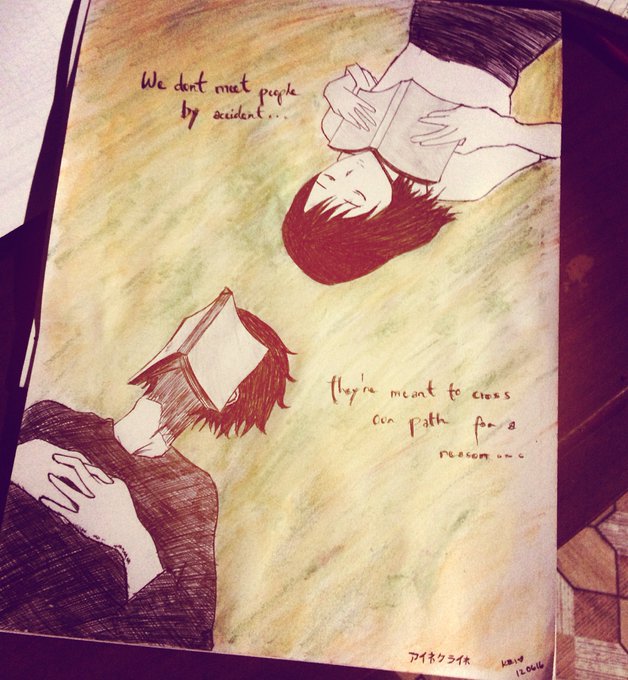 We dont meet people
by accident...
they're meant to cross
our path for a
reason....
アイネクライネ
KEI
120616